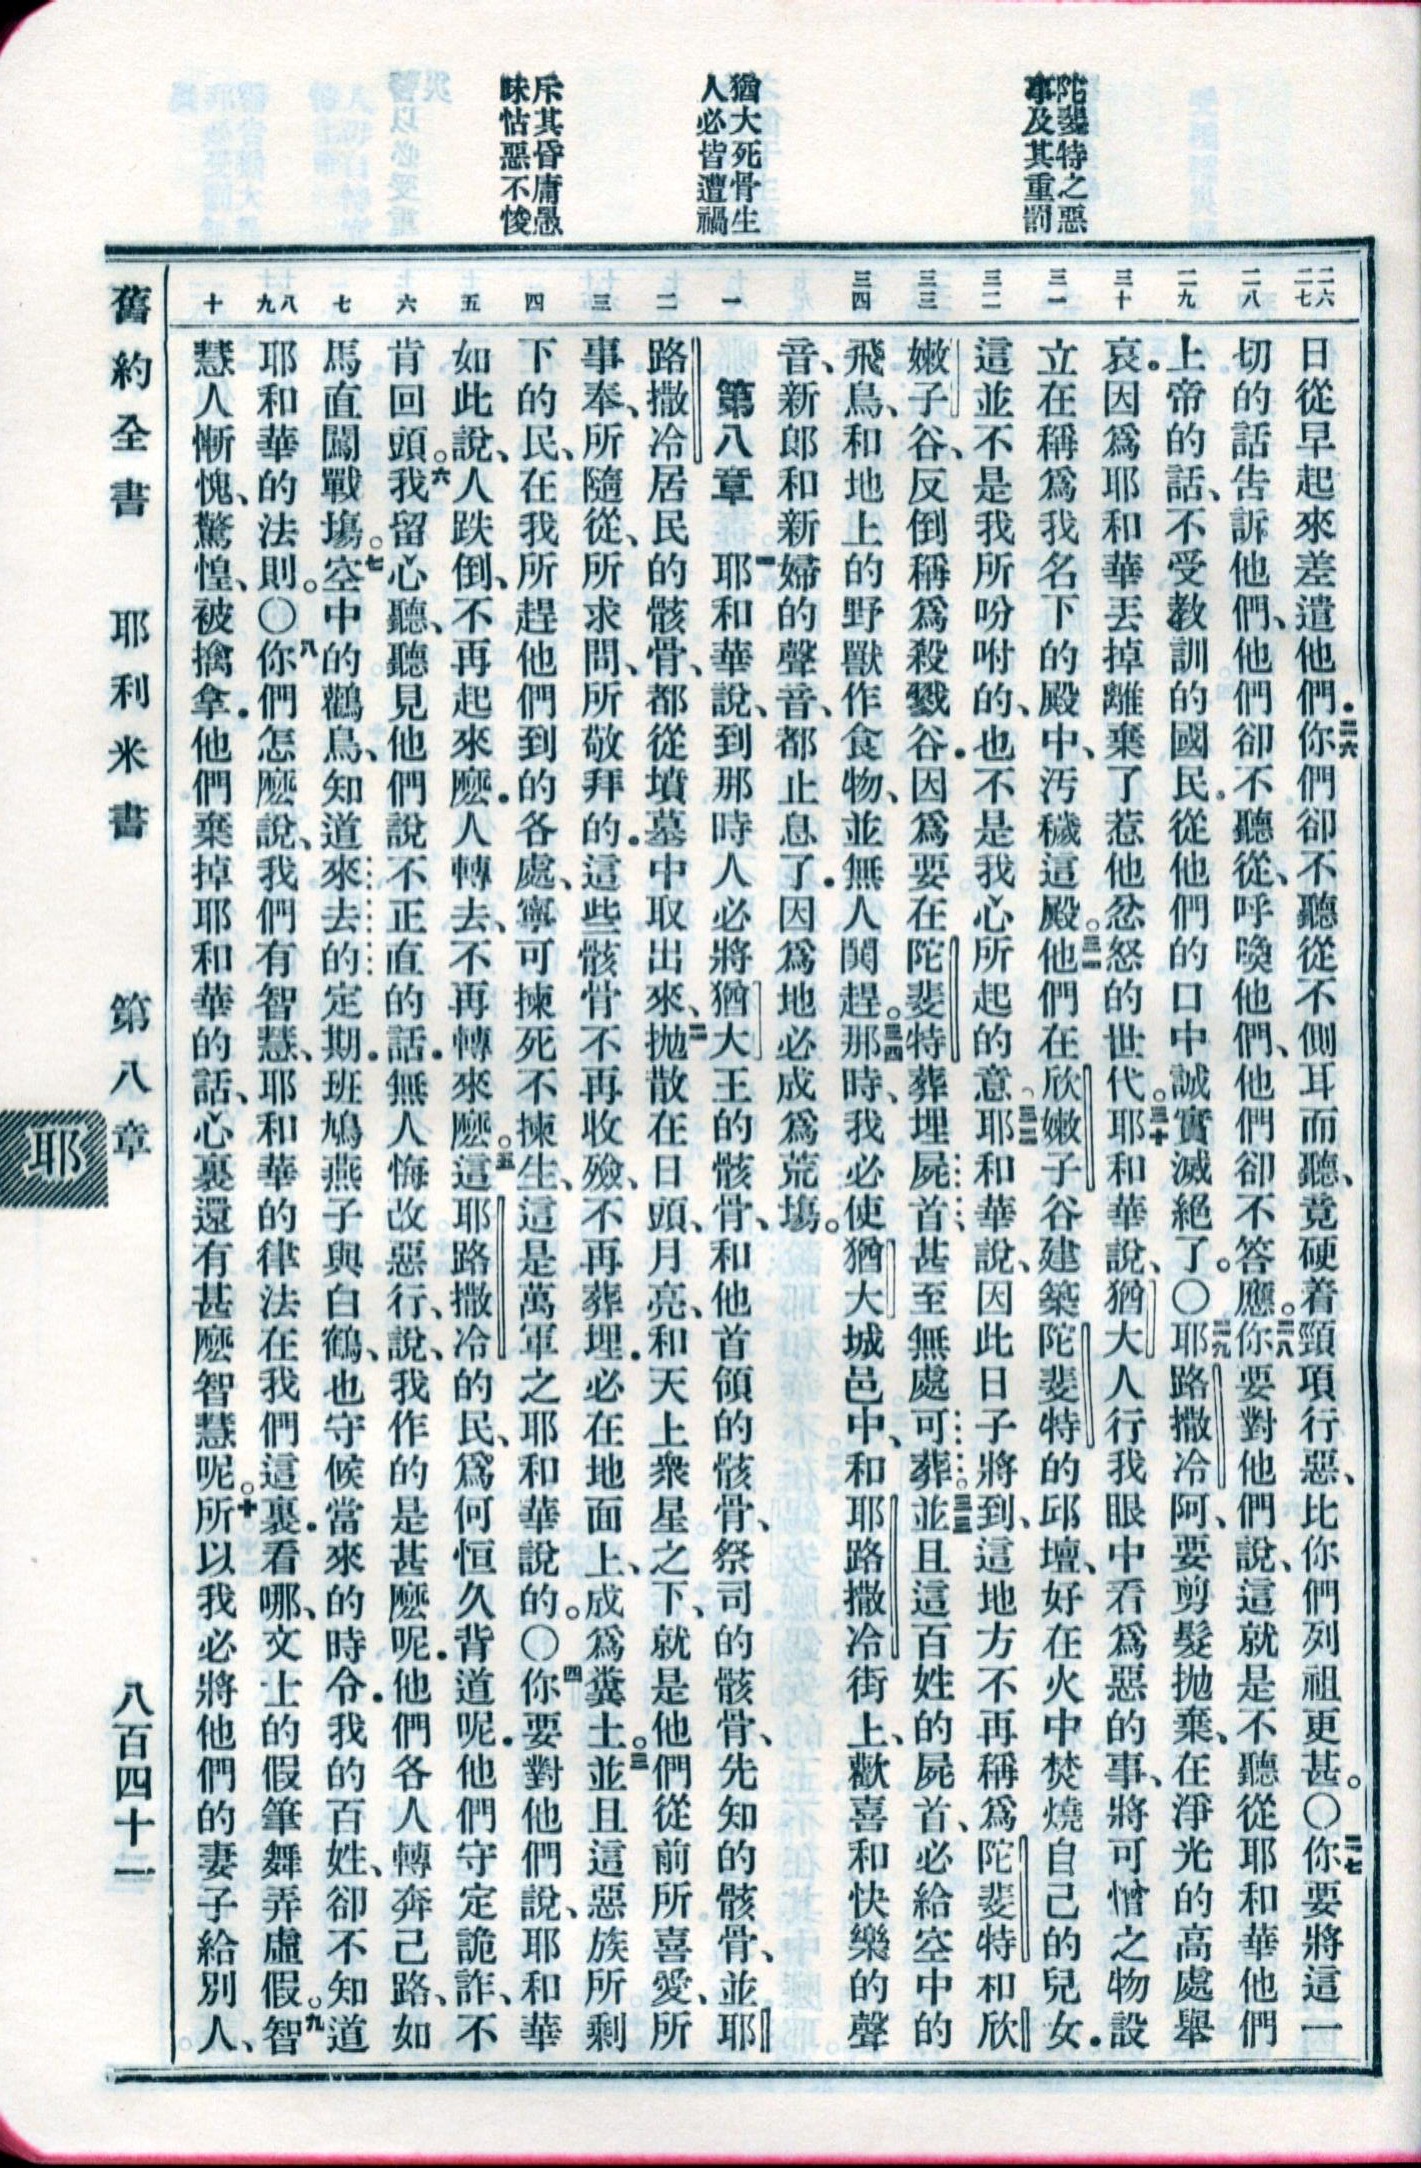 陀斐特之惡
事及其重罰
猶大死骨生
人必皆遭禍
斥其昏庸愚
昧怙惡不悛
二六
二七
二八
二九
三十
三一
三二
三三
三四
一
二
三
四
五
六
七
八
九
十
日從早起來差遣他們．二六你們卻不聽從不側耳而聽、竟硬着頸項行惡、比你們列祖更甚。〇二七你要將這一
切的話告訴他們、他們卻不聽從、呼喚他們、他們卻不答應。二八你要對他們說、這就是不聽從耶和華他們
上帝的話、不受教訓的國民．從他們的口中誠實滅絕了。〇二九耶路撒冷阿、要剪髮拋棄、在淨光的高處舉
哀．因爲耶和華丟掉離棄了惹他忿怒的世代。三十耶和華說、猶大人行我眼中看爲惡的事、將可憎之物設
立在稱爲我名下的殿中、汚穢這殿。三一他們在欣嫩子谷建築陀斐特的邱壇、好在火中焚燒自己的兒女．
這並不是我所吩咐的、也不是我心所起的意。三二耶和華說、因此日子將到、這地方不再稱爲陀斐特和欣
嫩子谷、反倒稱爲殺戮谷．因爲要在陀斐特葬埋屍首、甚至無處可葬。三三並且這百姓的屍首、必給空中的
飛鳥、和地上的野獸作食物、並無人鬨趕。三四那時、我必使猶大城邑中、和耶路撒冷街上、歡喜和快樂的聲
音、新郎和新婦的聲音、都止息了．因爲地必成爲荒場。
第八章　一耶和華說、到那時人必將猶大王的骸骨、和他首領的骸骨、祭司的骸骨、先知的骸骨、並耶
路撒冷居民的骸骨、都從墳墓中取出來、二拋散在日頭、月亮、和天上衆星之下、就是他們從前所喜愛、所
事奉、所隨從、所求問、所敬拜的．這些骸骨不再收殮、不再葬埋．必在地面上、成爲糞土。三並且這惡族所剩
下的民、在我所趕他們到的各處、寧可揀死不揀生、這是萬軍之耶和華說的。〇四你要對他們說、耶和華
如此說、人跌倒、不再起來麼．人轉去、不再轉來麼。五這耶路撒冷的民、爲何恒久背道呢．他們守定詭詐、不
肯回頭。六我留心聽、聽見他們說不正直的話．無人悔改惡行、說、我作的是甚麼呢．他們各人轉奔己路、如
馬直闖戰場。七空中的鸛鳥、知道來去的定期．班鳩燕子與白鶴、也守候當來的時令．我的百姓、卻不知道
耶和華的法則。〇八你們怎麼說、我們有智慧、耶和華的律法在我們這裏．看哪、文士的假筆舞弄虛假。九智
慧人慚愧、驚惶、被擒拿．他們棄掉耶和華的話、心裏還有甚麼智慧呢。十所以我必將他們的妻子給別人、
舊約全書　耶利米書　第八章　八百四十二
耶